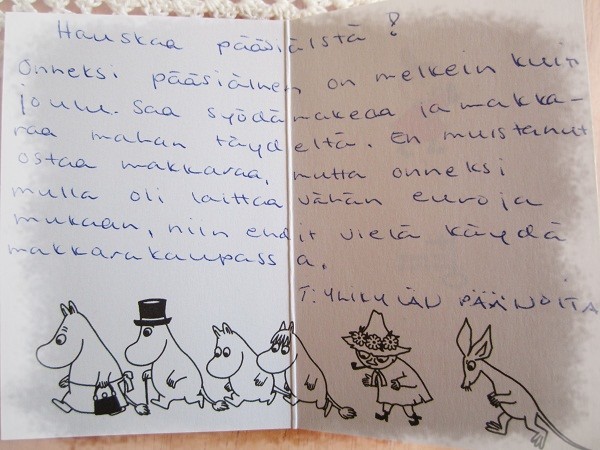 Hauskaa pääsiäistä!
Onneksi pääsiäinen on melkein kuin
joulu. Saa syödä makeaa ja makka-
raa mahan täydeltä. En muistanut
ostaa makkaraa, mutta onneksi
mulla oli laittaa vähän euroja
mukaan, niin endit vielä käydä
makkarakaupassa.
T: YLIKYLÄN PÄÄNOITA